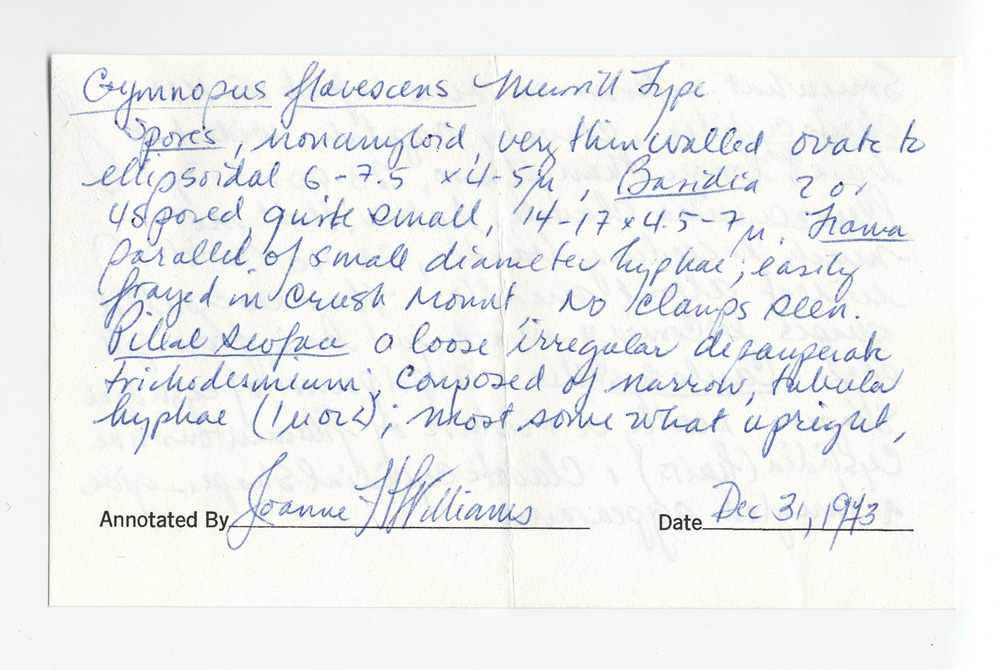 Gymnopus flavescens Murrill Type
Spores, nonamyloid, very thin walled ovate to
ellipsoidal 6-7.5 x 4-5µ, Basidia 2 or
4 spored, quite small, 14-17 x 4.5-7µ. Trama
parallel of small diameter hyphae, easily
frayed in crush mount, No clamps seen.
Pileal surface a loose irregular
trichodermium; composed of narrow, tubular
hyphae; most some what upright,
Annotated By Joanne Williams
Date Dec 31, 1973